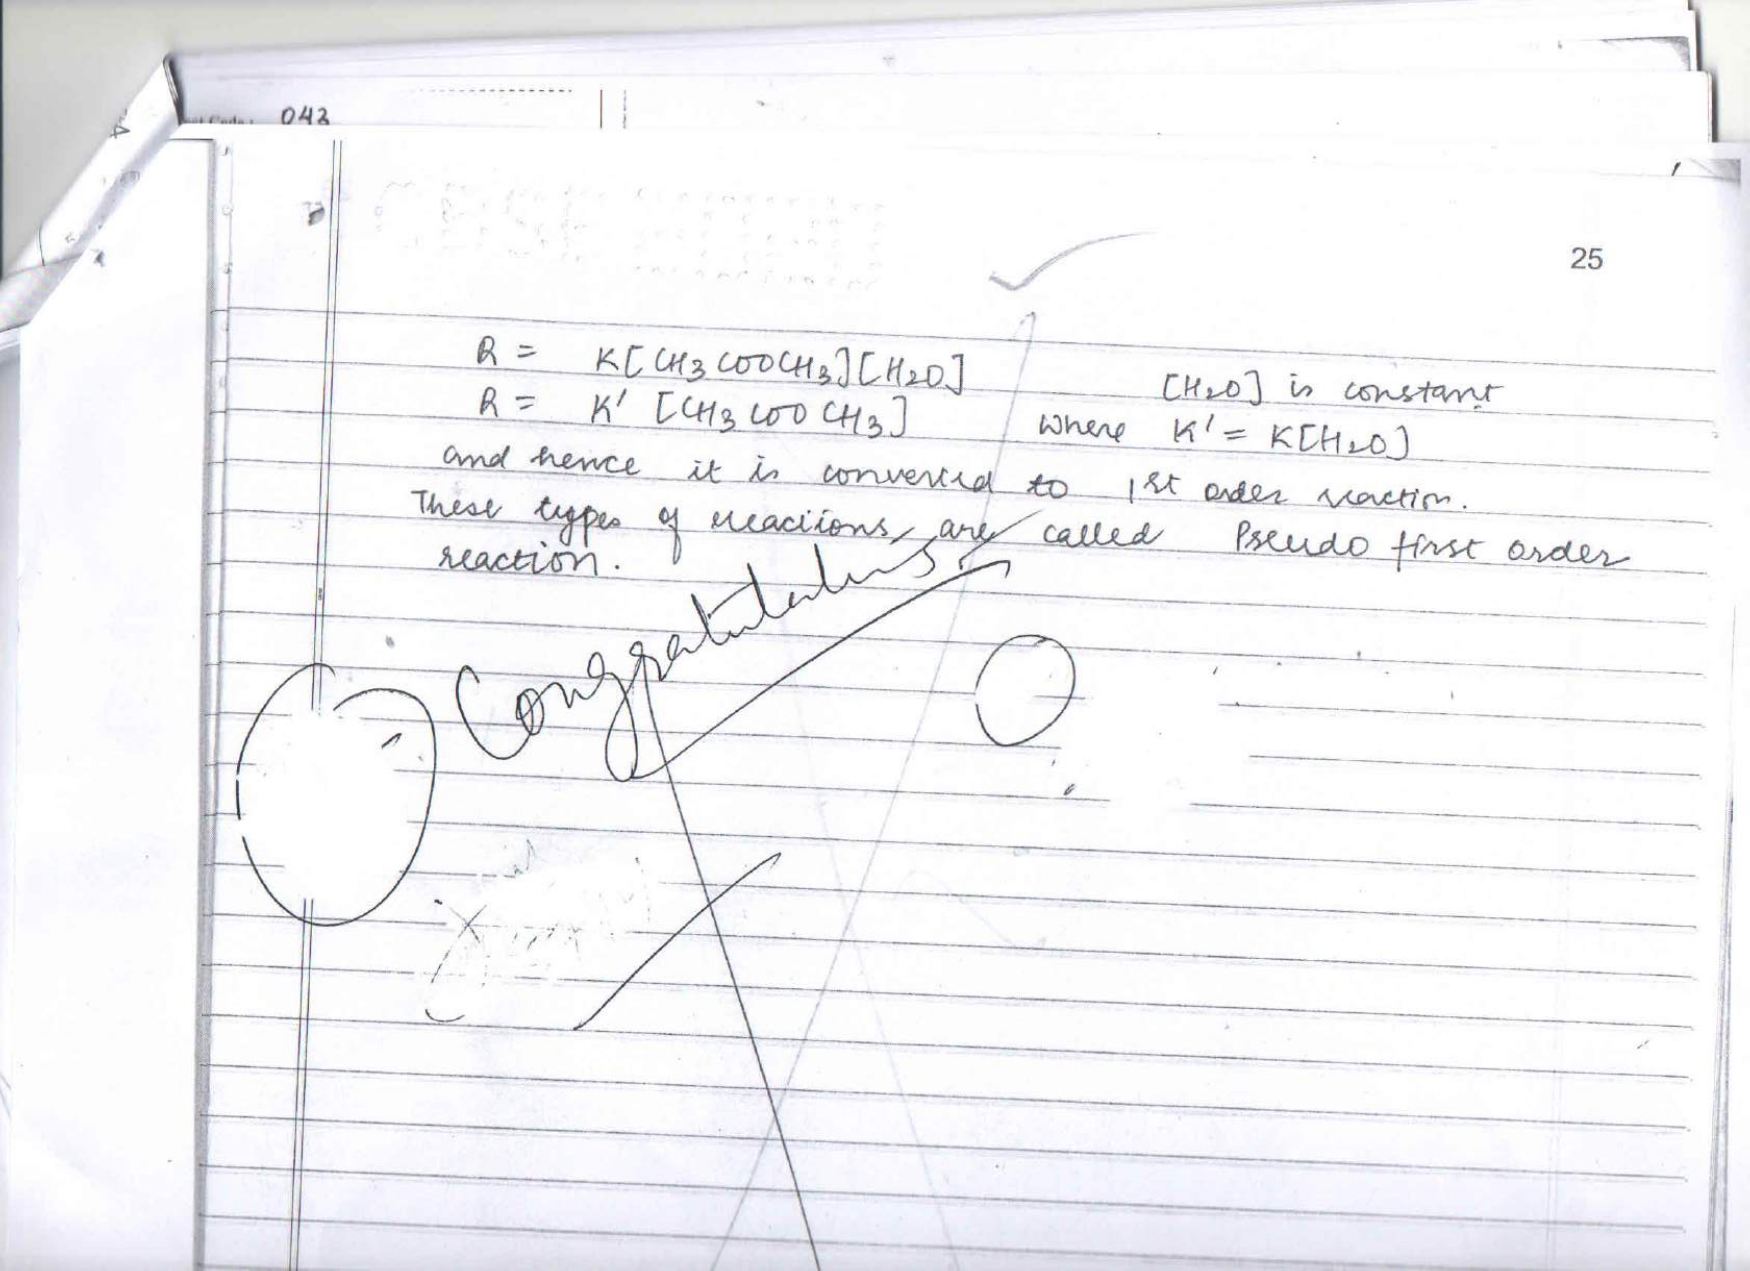 043
25
R = K[CH3COOCH3][H2O] [H2O] is constant
R = K' [CH3COOCH3] where K' = K[H2O]
and hence it is converted to 1st order reaction.
These types of reactions, are called Pseudo first order
reaction.
Congratulations